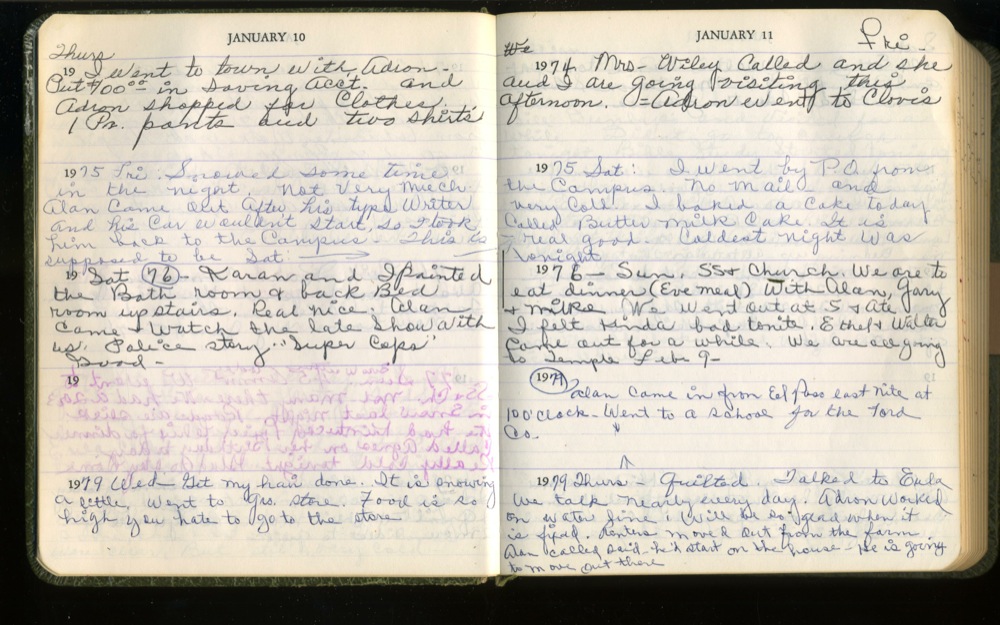 JANUARY 10
Thurs
19 I went to town with Adron.
Put $100.00 in Saving Acct. and
Adron shopped for Clothes.
1 Pr. pants and two shirts
1975 Fri: Snowed some time
in the night. Not Very Much
Alan Came Out After his type Writer
and his Car wouldn't start, so I took
him back to the Campus - This is
supposed to be Sat:
19 Sat (76) - Karan and I Painted
the Bath room & back Bed
room upstairs. Real nice. Alan
Came & Watch the late Show with
us. Police story "Super Cops"
Good -
19
1979 Wed Got my hair done. It is snowing
a little, went to gro. store. Food is so
high you hate to go to the store
JANUARY 11
Fri -
1974 Mrs - Wiley Called and she
and I are going visiting this
afternoon. - Adron went to Clovis
1975 Sat: I went by P.O. from
the Campus. No mail and
very Cold. I baked a Cake today
Called Butter milk Cake. It is
real good. Coldest night was
tonight
1976 - Sun. SS & Church. We are to
eat dinner (Eve meal) With Alan, Gary
& Mike We Went out at 5 & Ate
I felt kinda bad tonite. Ethel & Walter
Came out for a while. We are all going
to Temple Feb 9-
1977
Alan came in from El Paso last nite at
10 O'clock - Went to a school for the Ford
Co.
1979 Thurs - Quilted. Talked to Eula
we talk nearly every day. Adron Worked
on water line. Will be so glad when it
is fixed. Renters moved out from the farm
Alan called said he'd start on the house - He is going
to move out there